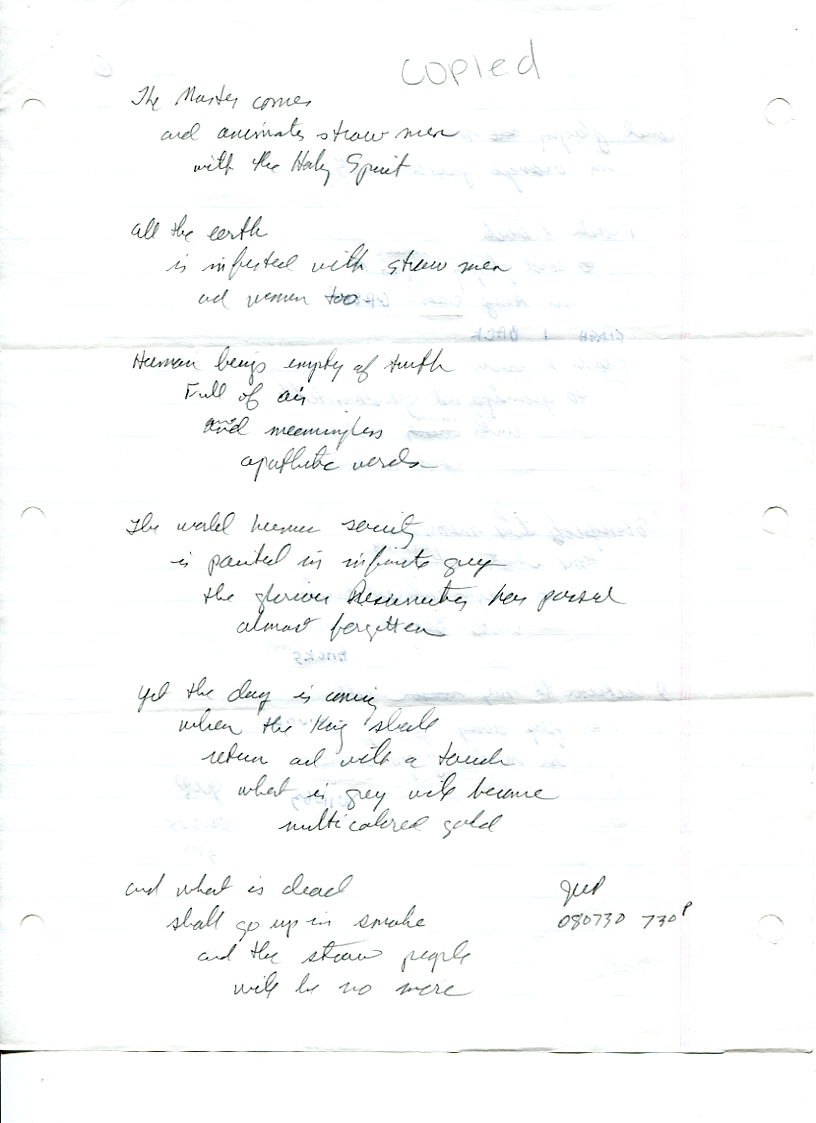 copied
The Master comes
and animates straw men
with the Holy Spirit
all the earth
is infested with straw men
and women too
Human beings empty of truth
Full of air
and meaningless
apathetic words
The world human society
is painted in infinite grey
the glorious Resurrection has passed
almost forgotten
yet the day is coming
when the King shall
return and with a touch
what is grey will become
multicolored gold
and what is dead
shall go up in smoke
and the straw people
will be no more
080730 730P